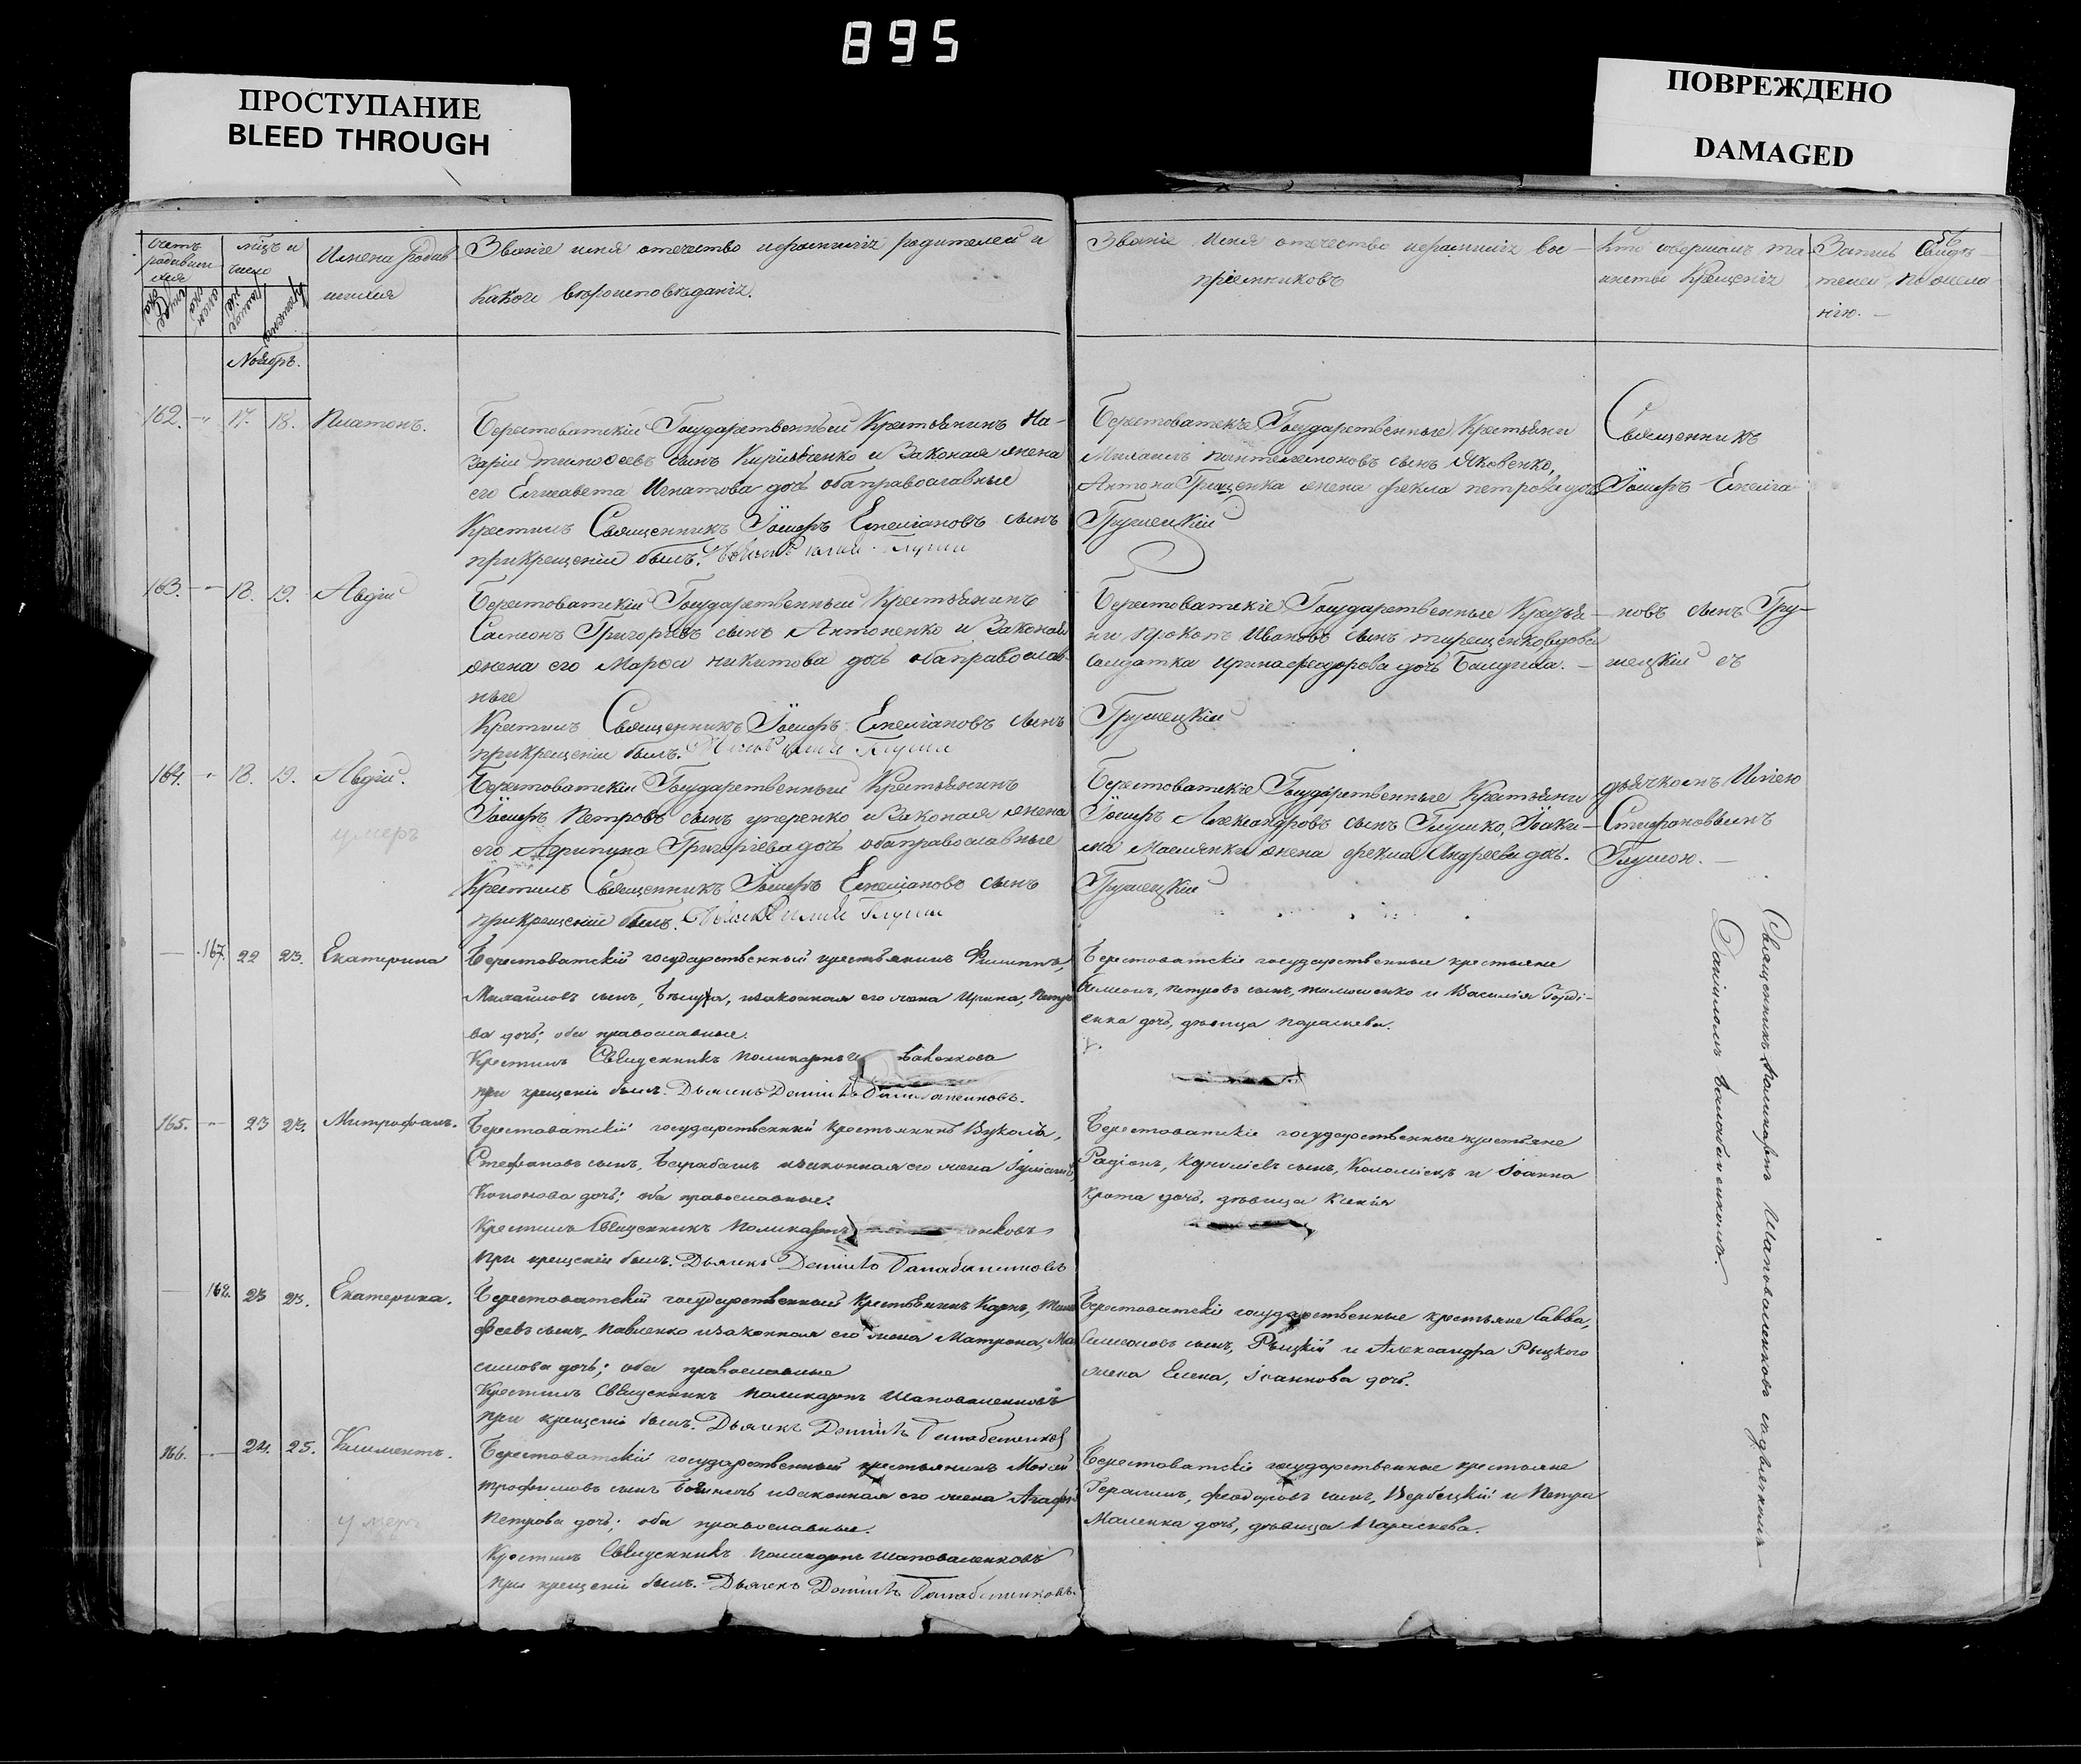 895
ПРОСТУПАНИЕ
BLEED THROUGH
ПОВРЕЖДЕНО
DAMAGED
56
Счетъ родившихся
мцъ и число
Имена родив
шихся
Званіе имя отечество ифамиліи родителей и
какого вероисповѣданія.
Званіе имя отечество ифамиліи вос-
пріемниковъ
Кто совершалъ та
инство Крещенія
Запись Свидѣ-
телей по жела
нію. —
Ноябрь.
162. -"- 17. 18. Платонъ.
Берестоватскій Государственный Крестьянинъ На-
зарій тимофеевъ сынъ Кириченко и Законая жена
его Елисавета Игнатова дочь обаправославные
Крестилъ Священникъ Іосифъ Емеліановъ сынъ
прикрещеніи былъ.
Берестоватскіе Государственные Крестьяни
Михаилъ пантелемоновъ сынъ Яковенко,
Антона Грищенка жена фекла петрова дочь
Грушецкій
Священникъ
Іосифъ Емелія
163. -"- 18. 19. Авдій
Берестоватскій Государственный Крестьянинъ
Симеонъ Григорьевъ сынъ Антоненко и Законая
жена его Марфа никитова дочь обаправослав-
ные
Крестилъ Священникъ Іосифъ Емеліановъ сынъ
прикрещеніи былъ.
Берестоватскіе Государственные Крестья-
ни прокопъ Ивановъ сынъ терещенковдова
салдатка иринафедорова дочь
Грушецкій
новъ сынъ Гру-
шецкій съ
164. -"- 18. 19. Авдій.
умеръ
Берестоватскій Государственный Крестьянинъ
Іосифъ Петровъ сынъ уперенко и Законая жена
его Агрипина Григоріева дочь обаправославные
Крестилъ Священникъ Іосифъ Емеліановъ сынъ
прикрещеніи былъ.
Берестоватскіе Государственные Крестьяни
Іосифъ Александровъ сынъ Глушко, Іоаки-
ма Маслянки жена фекла Андреева дочь.
Грушецкій
дьячкомъ Иліею
Стефановымъ
Глушкою. —
— 167. 22 23. Екатерина
Берестоватскій государственный крестьянинъ Филиппъ,
Михайловъ сынъ, изаконная его жена Ирина, Петро
ва дочь; оба православные.
Крестилъ Священникъ Поликарпъ
при крещеніи былъ. Дьячекъ
Берестоватскіе государственные крестьяне
Симеонъ, Петровъ сынъ, тимошенко и Василія Горді-
енка дочь, дѣвица параскева.
165. -"- 23 23. Митрофанъ.
Берестоватскій государственный крестьянинъ Вуколъ,
Стефановъ сынъ, изаконная его жена
Кононова дочь; оба православные.
Крестилъ Священникъ Поликарпъ
при крещеніи былъ. Дьячекъ
Берестоватскіе государственные крестьяне
Радіонъ, сынъ, Коломіецъ и Іоанна
Крота дочь, дѣвица Ксенія
— 168. 23 23. Екатерина.
Берестоватскій государственный крестьянинъ Карпъ, Тимо
феевъ сынъ, Павленко изаконная его жена Матрона, Ма
симова дочь; оба православные
Крестилъ Священникъ Поликарпъ Шаповаленковъ
при крещеніи былъ. Дьячекъ
Берестоватскіе государственные крестьяне Савва,
Симеоновъ сынъ, Рѣцкій и Александра Рѣцкого
жена Елена, Іоаннова дочь.
166. -"- 24. 25. Климентъ.
умеръ
Берестоватскій государственный крестьянинъ Мосей
трофимовъ сынъ изаконная его жена Агафія
Петрова дочь; оба православные.
Крестилъ Священникъ Поликарпъ Шаповаленковъ
при крещеніи былъ. Дьячекъ
Берестоватскіе государственные крестьяне
Герасимъ, феодоровъ сынъ, Вербецкій и Петра
Маленка дочь, дѣвица Параскева.
Священникъ Поликарпъ Шаповаленковъ съдьячкомъ
Даніиломъ